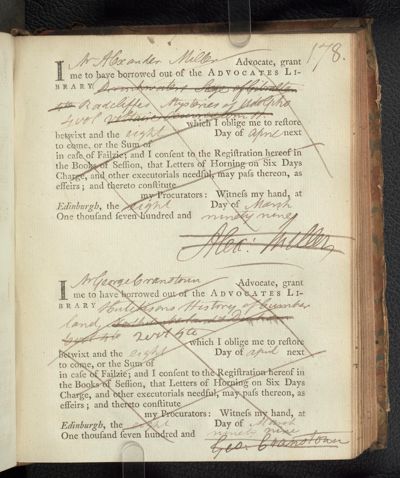 178.
I Mr Alexander Miller Advocate, grant
me to have borrowed out of the ADVOCATES LI-
BRARY Drinkwaters Siege of Gibraltar
4to Radcliffes Mysteries of Udolpho
4 vol which I oblige me to restore
betwixt and the eight Day of April next
to come, or the Sum of
in case of Failzie; and I consent to the Registration hereof in
the Books of Session, that Letters of Horning on Six Days
Charge, and other executorials needful, may pass thereon, as
effeirs; and thereto constitute
my Procurators: Witness my hand, at
Edinburgh, the eight Day of March
One thousand seven hundred and ninety nine
Alexr: Miller
I Mr George Cranstoun Advocate, grant
me to have borrowed out of the ADVOCATES LI-
BRARY Hutchinsons History of Cumber
land
2 vol 4to which I oblige me to restore
betwixt and the eight Day of april next
to come, or the Sum of
in case of Failzie; and I consent to the Registration hereof in
the Books of Session, that Letters of Horning on Six Days
Charge, and other executorials needful, may pass thereon, as
effeirs; and thereto constitute
my Procurators: Witness my hand, at
Edinburgh, the eight Day of March
One thousand seven hundred and ninety nine
Geo: Cranstoun